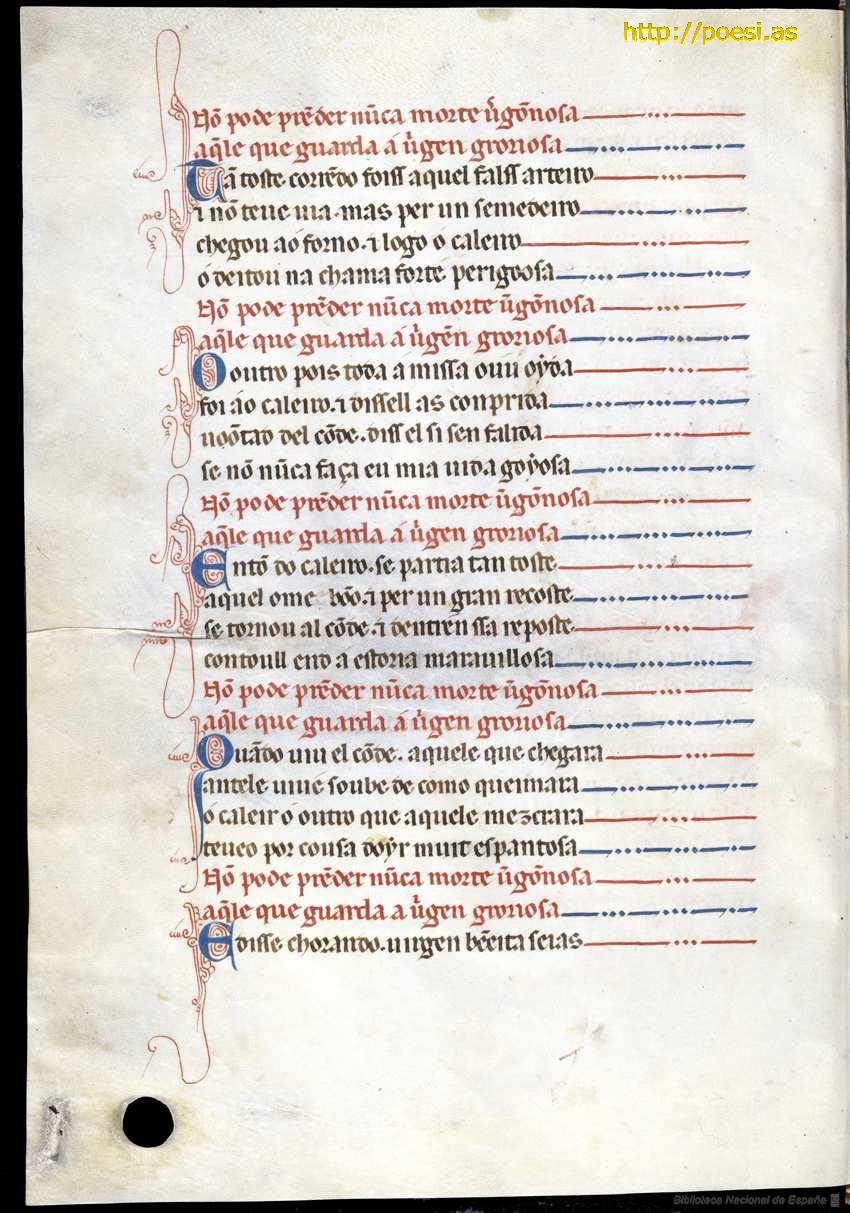 http://poesi.as
Nõ pode prẽder nũca morte ũgõnosa
aq̃le que guarda á uirgen groriosa
Tã toste corrẽdo foiss aquel falss arteiro
⁊ nõ teue uia. mas per un semedeiro
chegou ao forno. ⁊ logo o caleiro
o deitou na chama forte perigoosa
Nõ pode prẽder nũca morte ũgõnosa
aq̃le que guarda á uirgẽn groriosa
O outro pois toda a missa ouu oyda
foi ao caleiro. ⁊ dissell as conprida
uoõtad del cõde. diss el si sen falida
se nõ nũca faça eu mia uida goyosa
Nõ pode prẽder nũca morte ũgõnosa
aq̃le que guarda á uirgen groriosa
Entõ do caleiro. se partia tan toste
aquel ome bõo. ⁊ per un gran recoste
se tornou al cõde. ⁊ dentr en ssa reposte
contoull end a estoria marauillosa
Nõ pode prẽder nũca morte ũgõnosa
aq̃le que guarda á uirgen groriosa
Quãdo uiu el cõde. aquele que chegara
antele uiue soube de como queimara
o caleir o outro que aquele mezcrara
teueo por cousa doyr muit espantosa
Nõ pode prẽder nũca morte ũgõnosa
aq̃le que guarda a uirgen groriosa
E disse chorando. uirgen bẽeita seias
Biblioteca Nacional de España